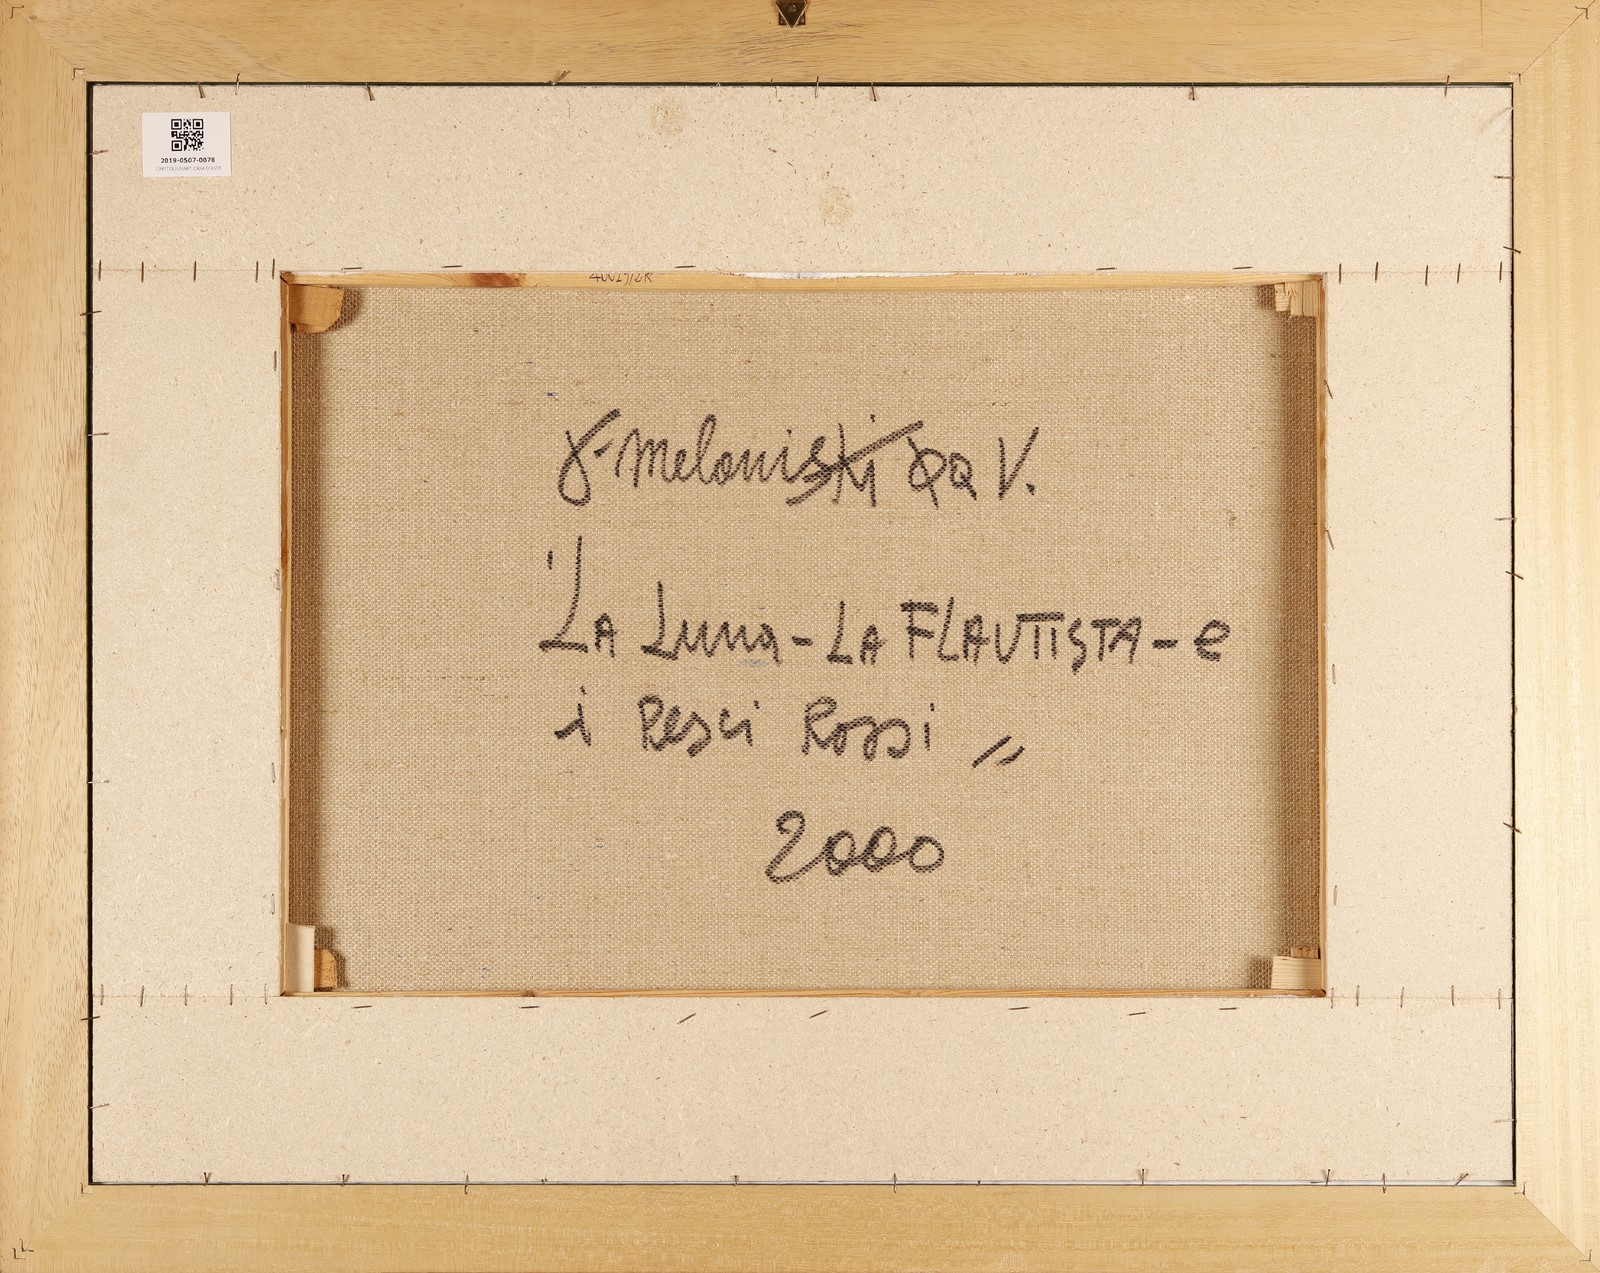 2019-0507-0078
CAPITOLIUMART CASA D'ASTE
F. Meloniski da V.
"La Luna - LA FLAUTISTA - e
i Pesci Rossi"
2000